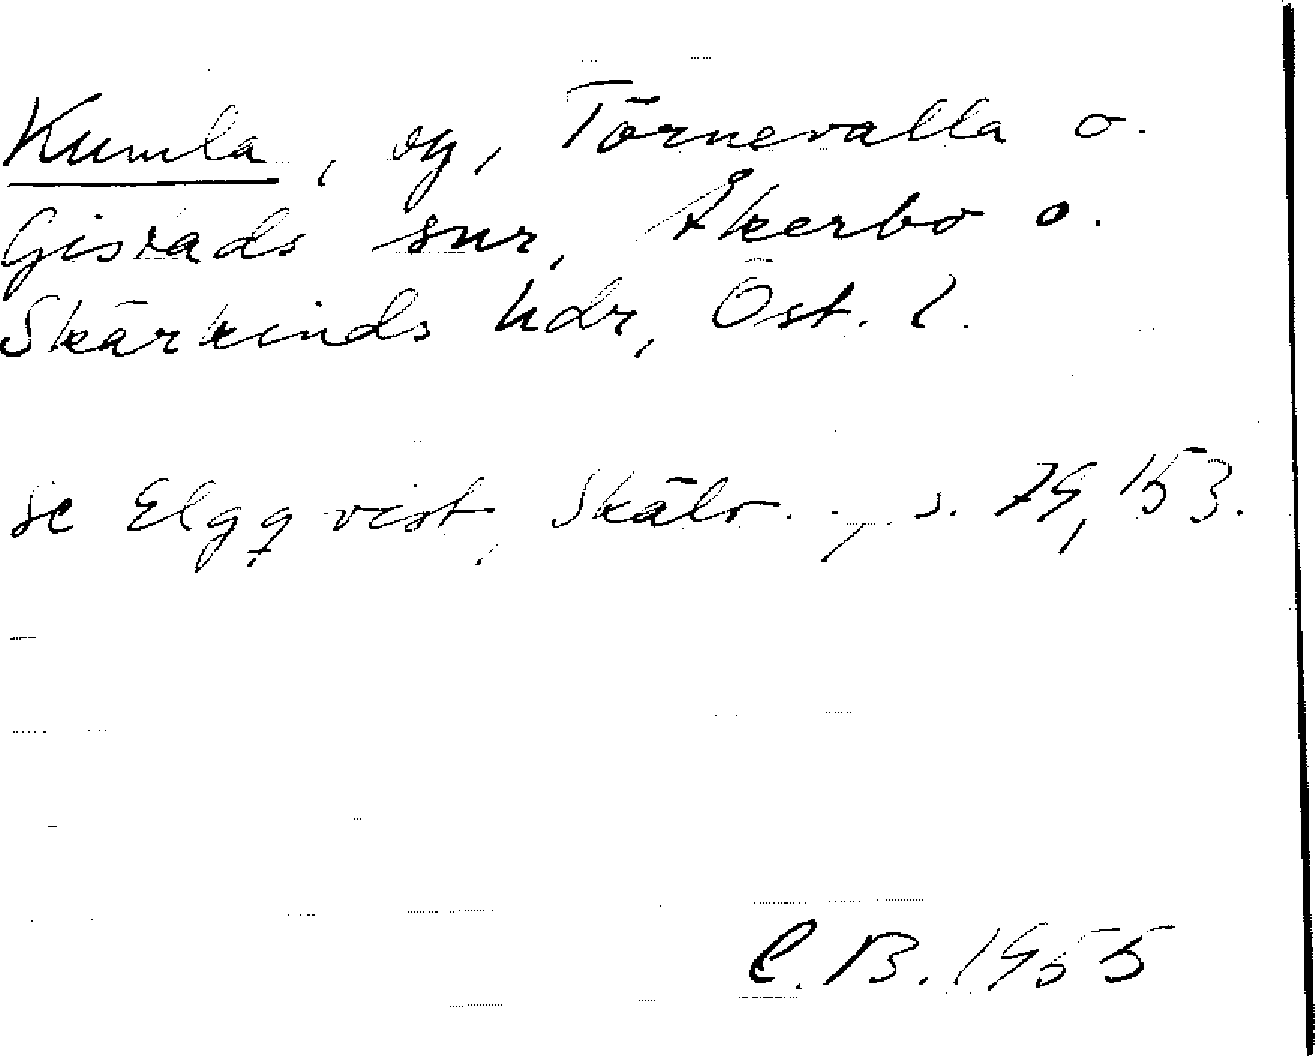 Kumla, og, Törnevalla o.
Gistads snr, Åkerbo o.
Skärkinds hdr, Öst. l.
se Elgqvist, Skälv..., s. 79, 153.
C.B. 1955